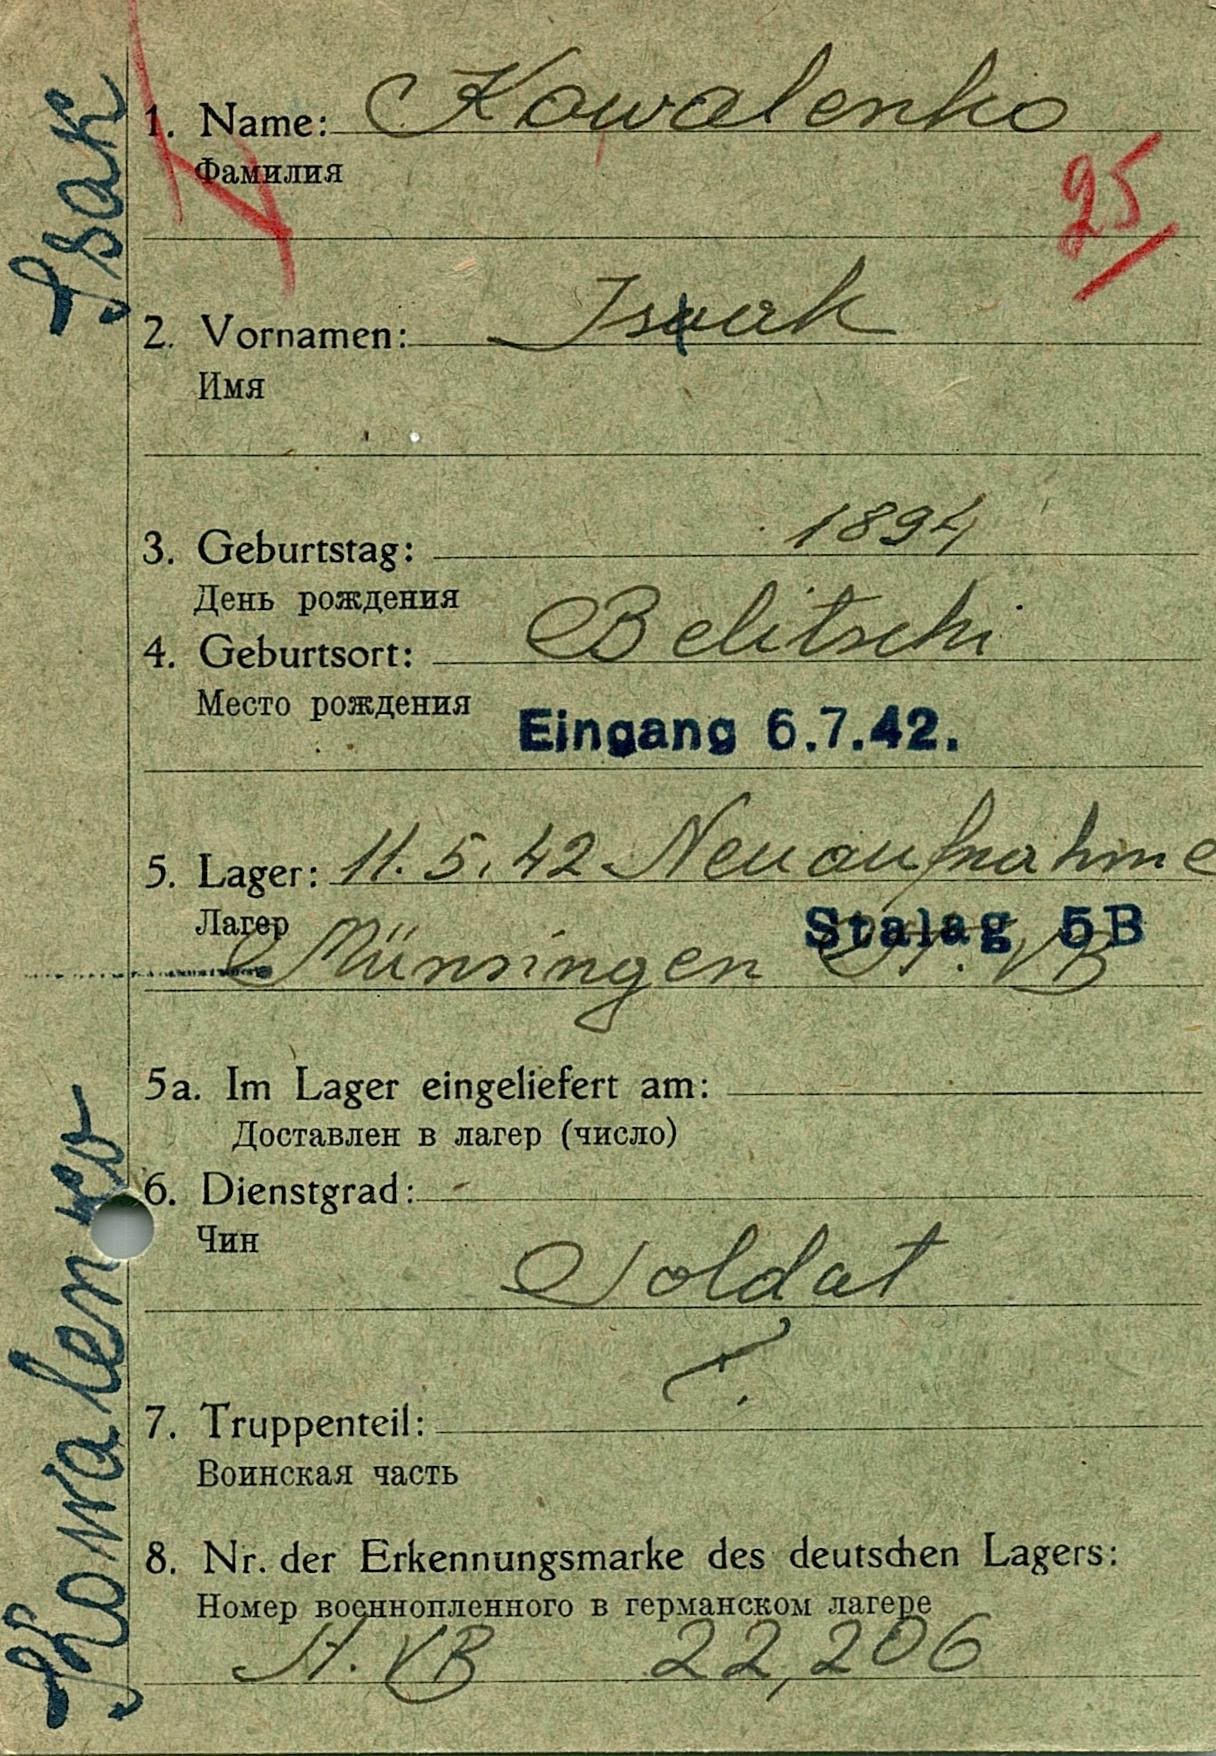 1. Name: Kowalenko
Фамилия
25
2. Vornamen: Isaak
Имя
3. Geburtstag: 1894
День рождения
4. Geburtsort: Belitschi
Место рождения
Eingang 6.7.42.
5. Lager: 11.5.42 Neuaufnahme
Лагер
Stalag 5B
Münsingen St. VB
5a. Im Lager eingeliefert am:
Доставлен в лагер (число)
6. Dienstgrad:
Чин
Soldat
7. Truppenteil:
Воинская часть
8. Nr. der Erkennungsmarke des deutschen Lagers:
Номер военнопленного в германском лагере
St. VB 22,206
Kowalenko Isak